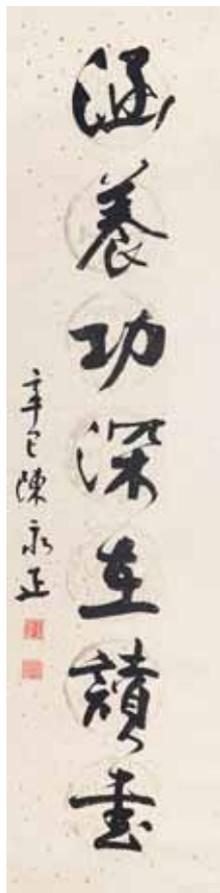 涵養功深在讀書
辛巳陳永正